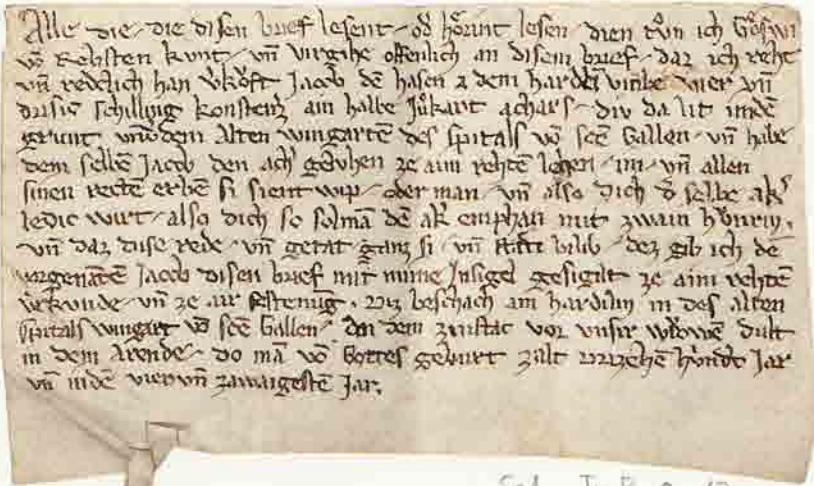 Alle die / die disen brief lesent / od hörint lesen / dien tůn ich
vō Rebsten kunt / vn̄ virgihe offenlich an disem brief / daz ich reht
vn̄ redelich han v̓köft Jacob dē hasen a dem harde vmbe vier vn̄
drisic schilling Konstenz̓ ain halbe Jůkart achars / div da lit indē
grunt vndem Alten wingartē des spitals vō scē Gallen / vn̄ habe
dem selbē Jacob den ach̓ geluhen ze aim rehtē lehen / im / vn̄ allen
sinen rectē erbē si sient wip / oder man / vn̄ also dich d̓ selbe ak̓
ledic wirt / also dich so solmā dē ak̓ emphan mit zwain hůnirn,
vn̄ daz dise rede / vn̄ getat ganz si / vn̄ stāti bilib / dez gib ich dē
vorgenātē Jacob disen brief mit mime Insigel gesigilt ze aim rehtē
vrkunde / vn̄ ze air festenung. Diz beschach am hardilin in des alten
spitals wingart vō scē Gallen / An dem zinstac vor vnsir vrowē dult
in dem Arende / do mā vō Gottes geburt zalt drizehē hvnd̓t Jar
vn̄ indē viervn̄ zawaigestē Jar.